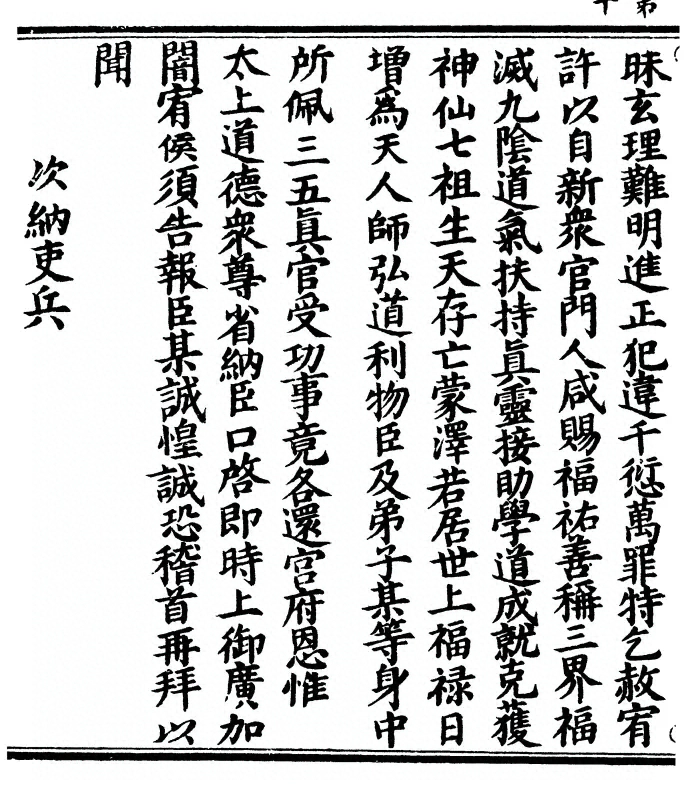 昧玄理難明進正犯違千愆萬罪特乞赦宥
許以自新衆官門人咸賜福祐善稱三界福
滅九陰道氣扶持眞靈接助學道成就克獲
神仙七祖生天存亡蒙澤若居世上福禄日
增爲天人師弘道利物臣及弟子某等身中
所佩三五眞官受功事竟各還宫府恩惟
太上道德衆尊省納臣口啓即時上御廣加
闇宥侯須告報臣某誠惶誠恐稽首再拜以
聞
次納吏兵